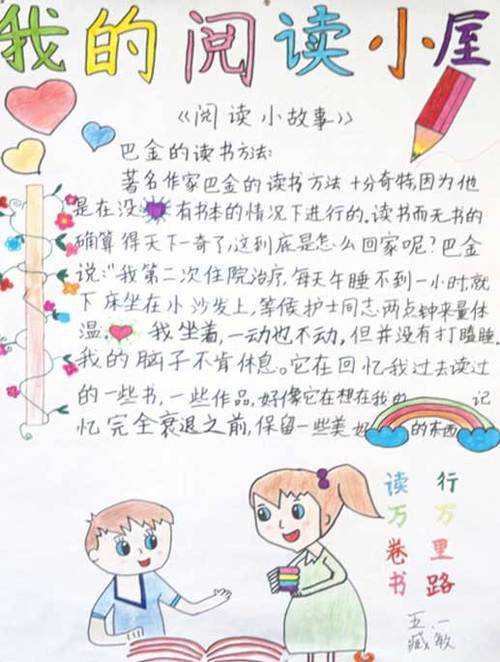 我的阅读小屋
《阅读小故事》
巴金的读书方法:
著名作家巴金的读书方法十分奇特,因为他
是在没有书本的情况下进行的.读书而无书的
确算得天下一奇了,这到底是怎么回家呢?巴金
说:"我第二次住院治疗,每天午睡不到一小时就
下床坐在小沙发上,等候护士同志两点钟来量体
温.我坐着,一动也不动,但并没有打瞌睡.
我的脑子不肯休息。它在回忆我过去读过
的一些书,一些作品,好像它在想在我的记
忆完全衰退之前,保留一些美好的东西
读万卷书
行万里路
五.一
臧敏